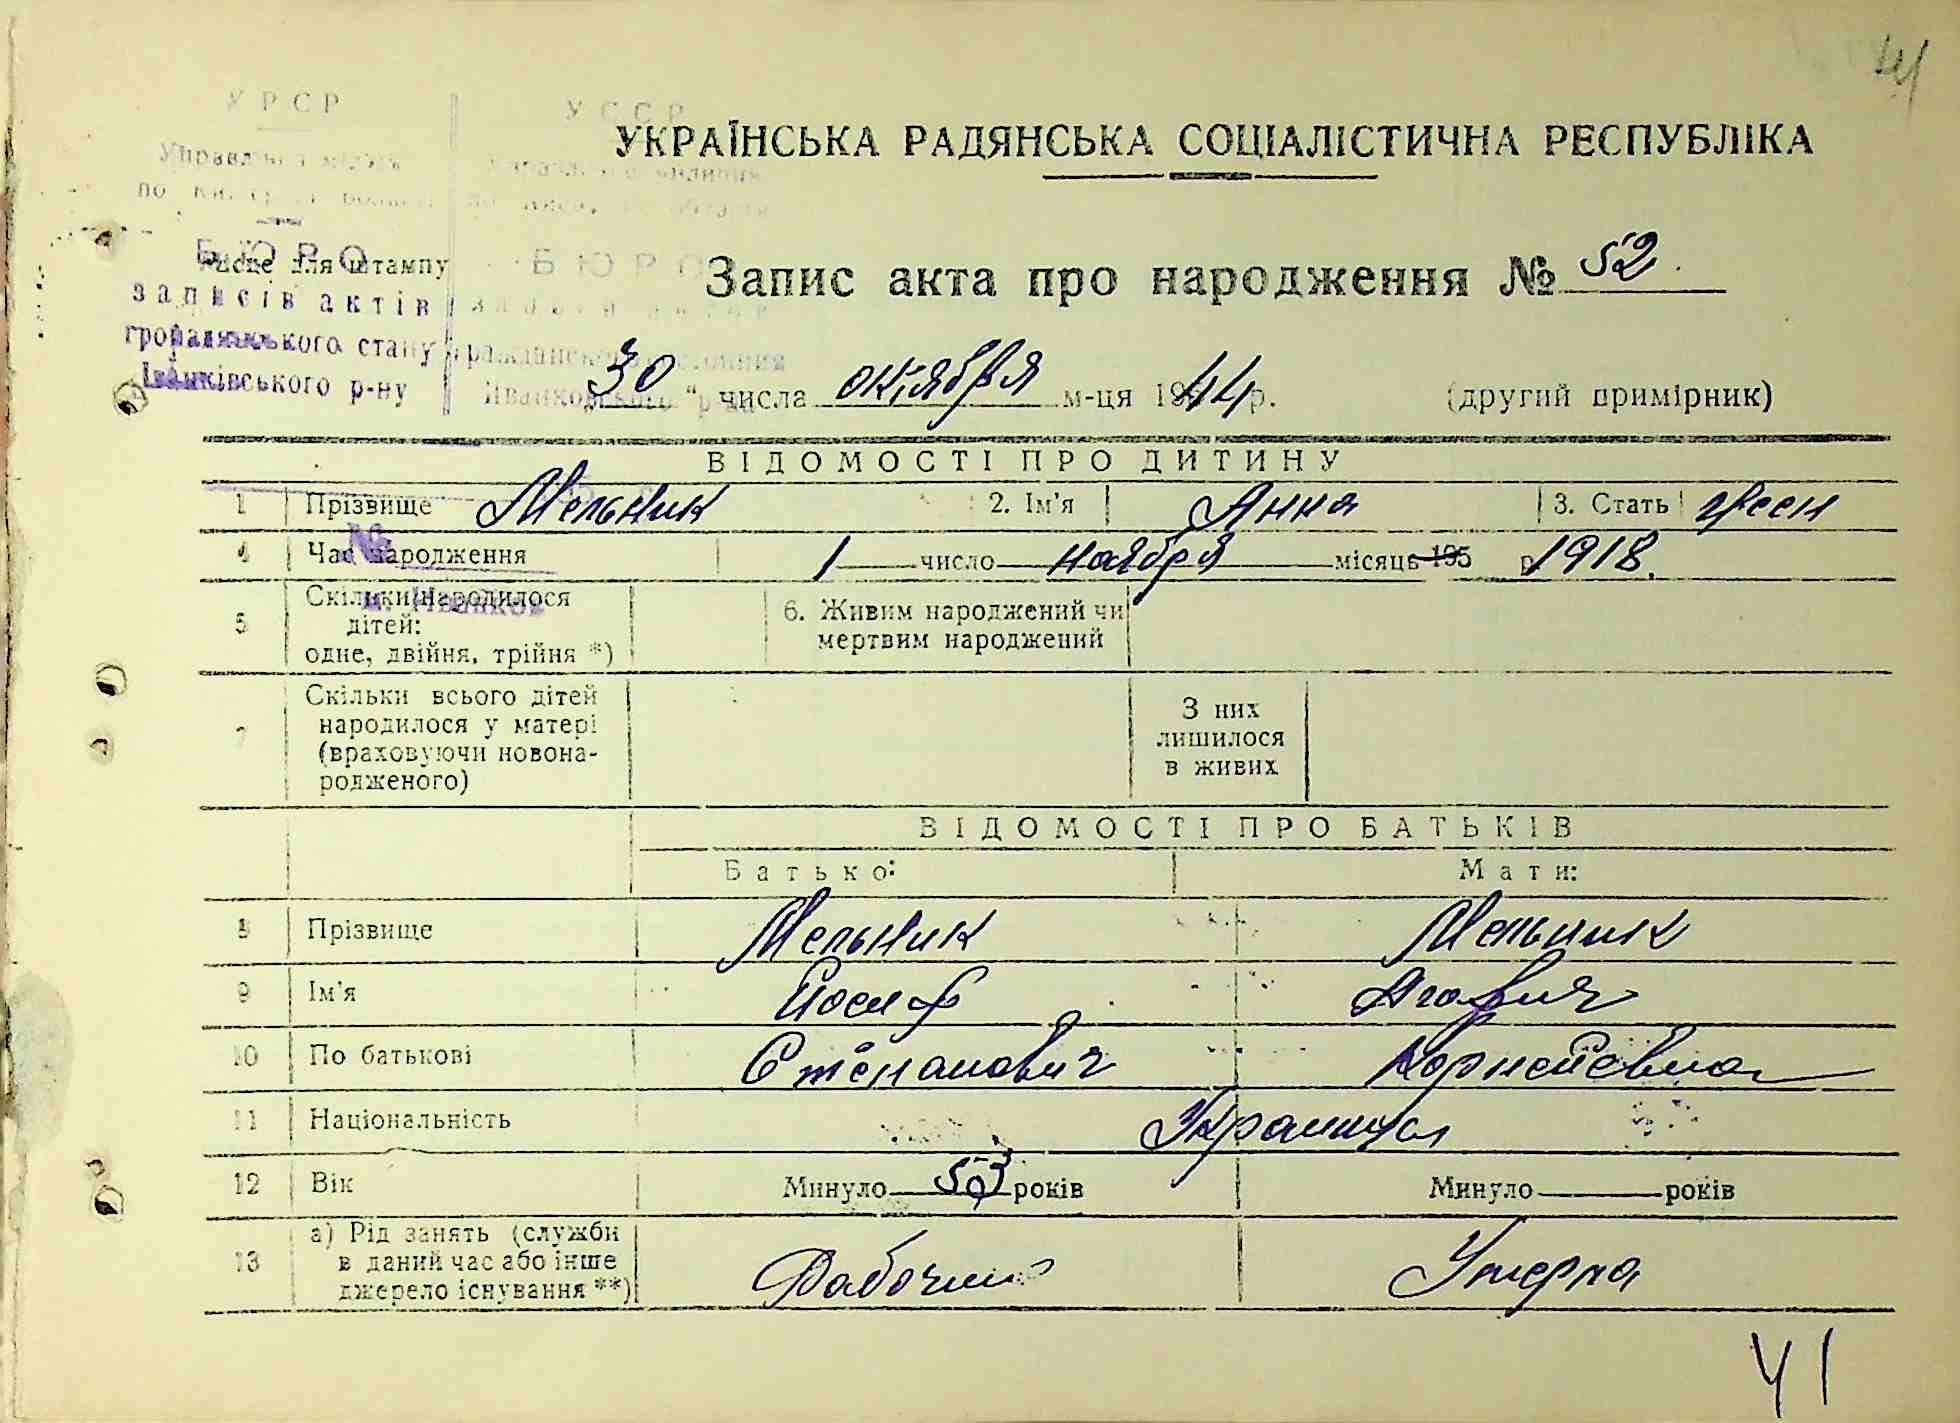 УРСР
УССР
УКРАЇНСЬКА РАДЯНСЬКА СОЦІАЛІСТИЧНА РЕСПУБЛІКА
БЮРО
БЮРО
Місце для штампу
Запис акта про народження № 52
записів актів
громадянського стану
Іванківського р-ну
Иванковского р-на
30 " числа октября м-ця 1944 р. (другий примірник)
ВІДОМОСТІ ПРО ДИТИНУ
1 Прізвище Мельник 2. Ім'я Анна 3. Стать жен
4 Час народження 1 число ноября місяць 195 р 1918.
№
5 Скільки народилося
дітей:
одне, двійня, трійня *)
6. Живим народжений чи
мертвим народжений
7 Скільки всього дітей
народилося у матері
(враховуючи новона-
родженого)
З них
лишилося
в живих
ВІДОМОСТІ ПРО БАТЬКІВ
Батько: Мати:
8 Прізвище Мельник Мельник
9 Ім'я Иосиф
10 По батькові Степанович Корнеевна
11 Національність Украинцы
12 Вік Минуло 53 років Минуло років
13 а) Рід занять (служби
в даний час або інше
джерело існування **)
Рабочий Умерла
41